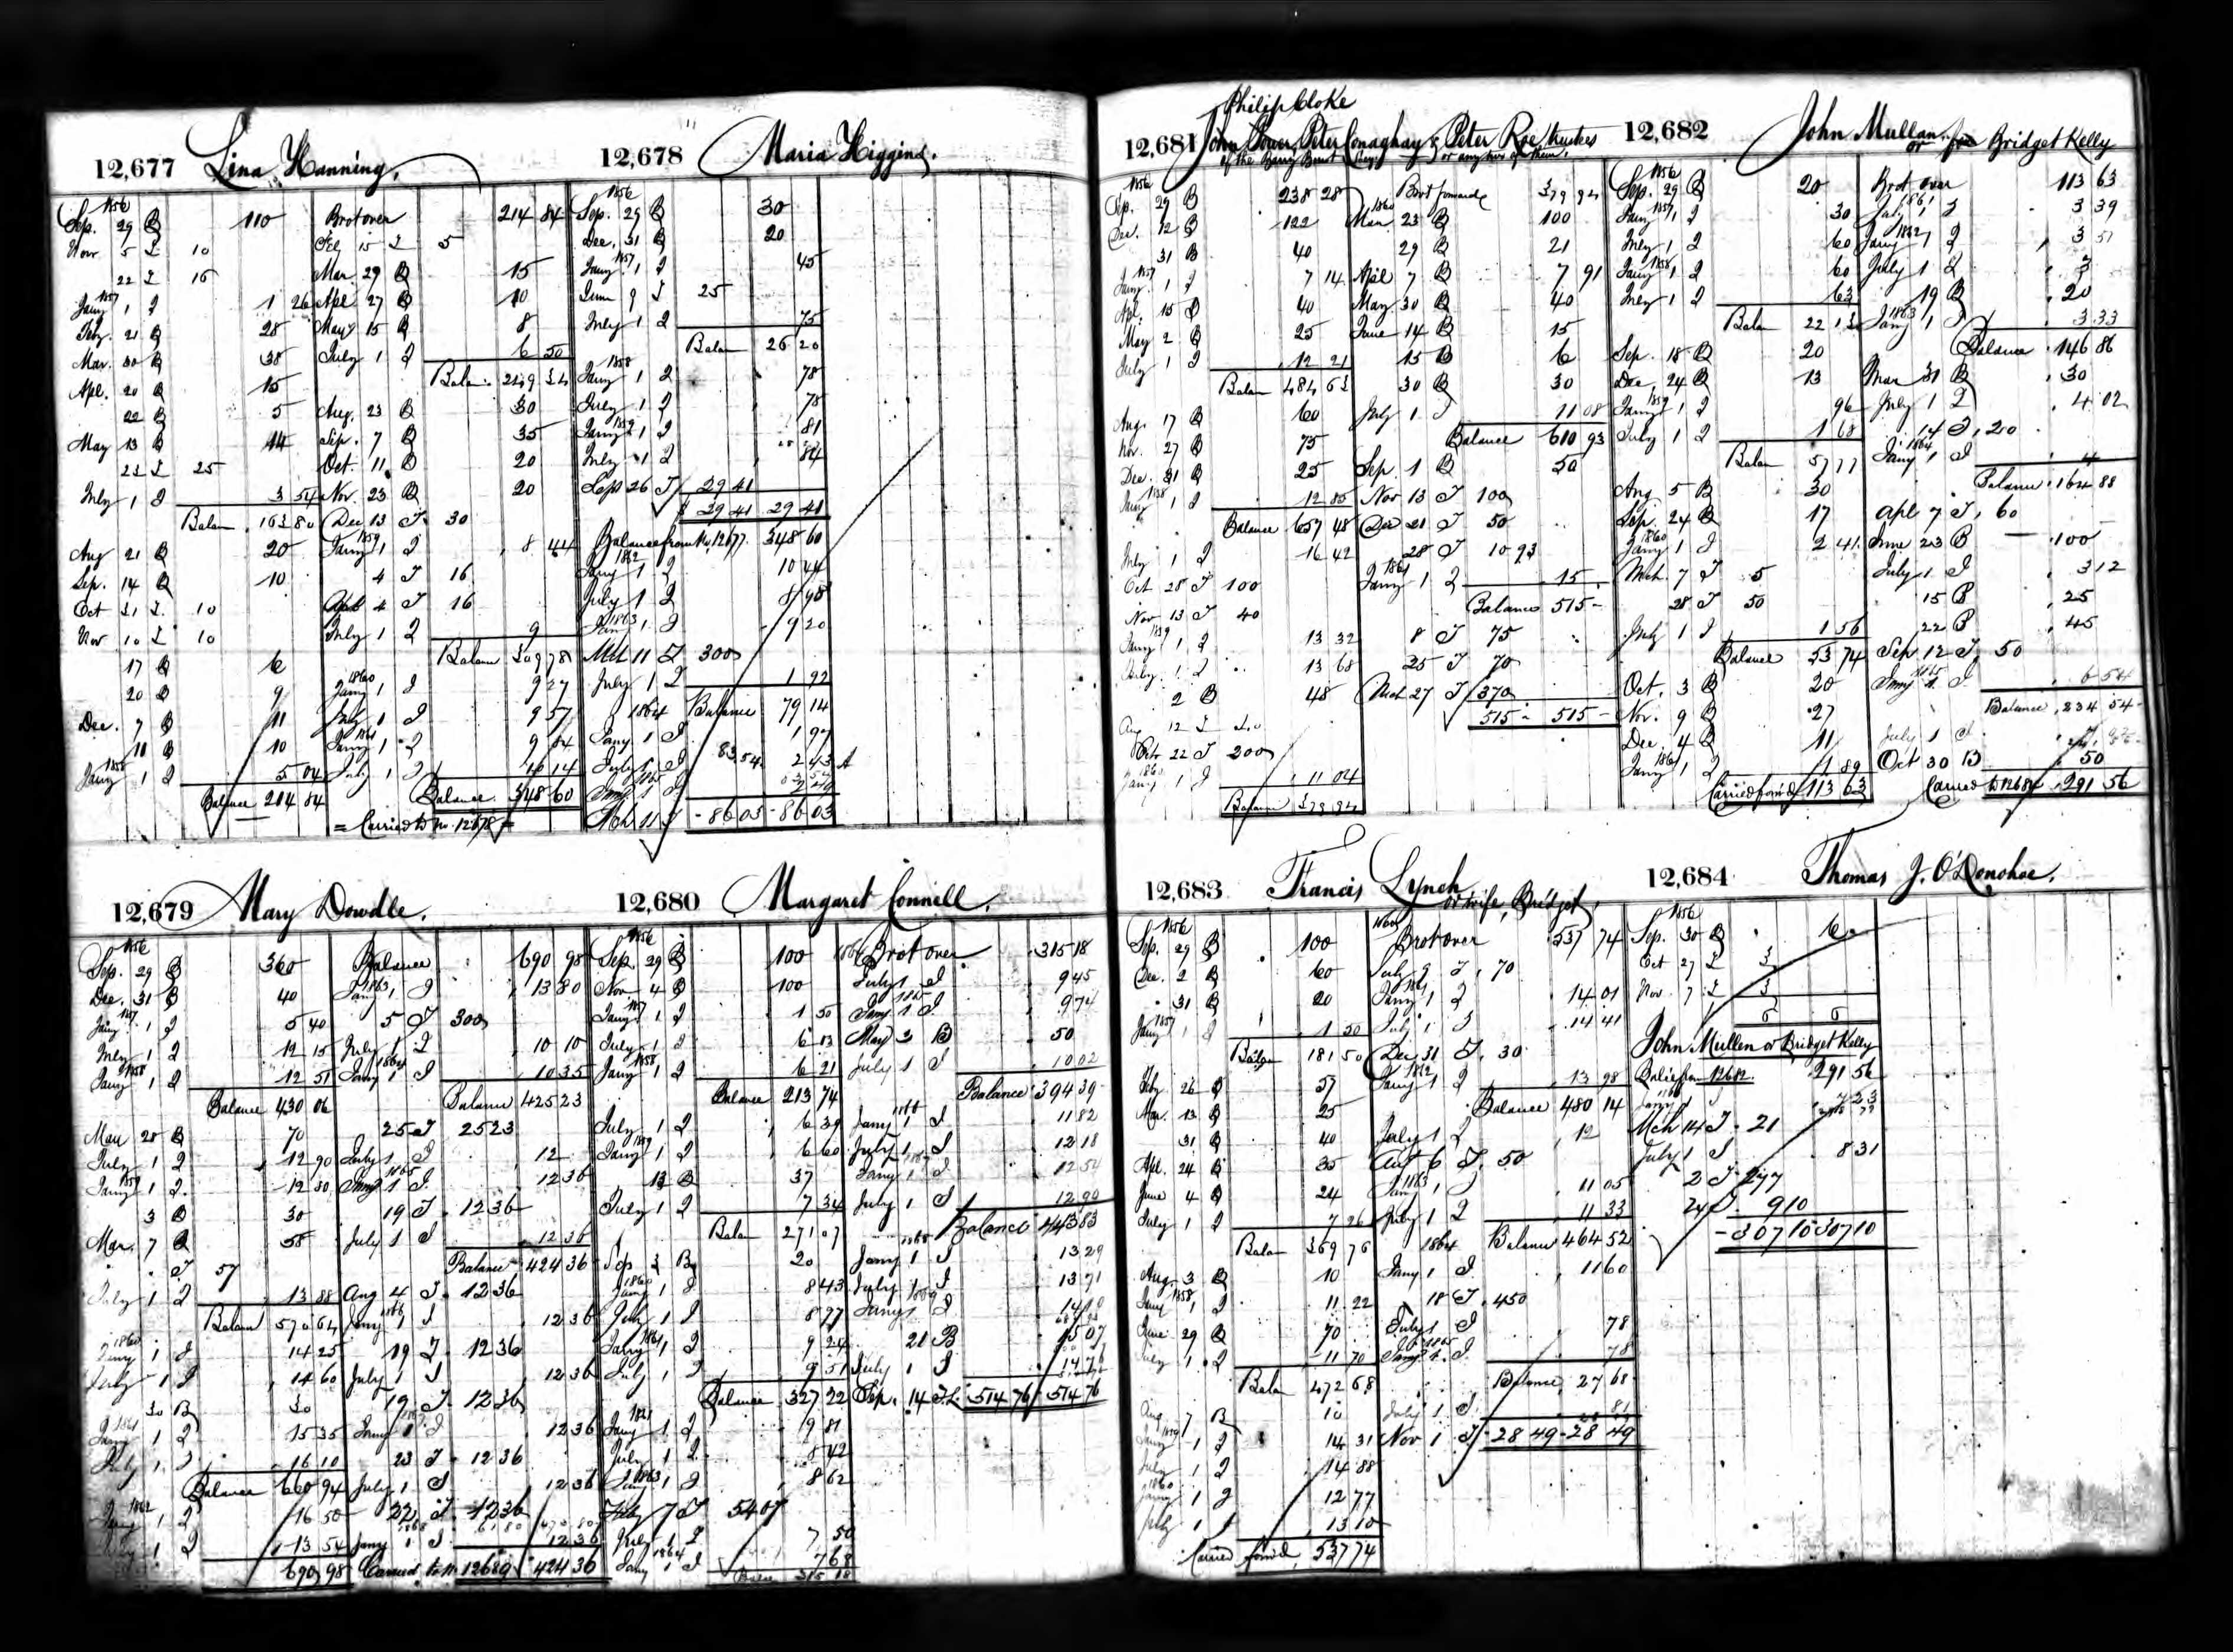 12,677 Lina Hanning.
1856
Sep. 29 B 110
Nov 5 T 10
22 T 15
1857
Jany 1 I 1 26
Feby. 21 B 28
Mar. 30 B 38
Apl. 20 B 15
22 B 5
May 13 B 14
22 T 25
July 1 I 3 54
Balan 163 80
Aug 21 B 20
Sep. 14 B 10
Oct 31 T 10
Nov 10 T 10
17 B 6
20 B 9
Dec. 7 B 11
11 B 10
1858
Jany 1 I 5 04
Balance 214 84
Brot over 214 84
15 T 5
Mar. 29 B 15
Apl 27 B 10
May 15 B 8
July 1 I 6 50
Balan. 249 34
Aug. 23 B 30
Sep. 7 B 35
Oct. 11 B 20
Nov. 23 B 20
Dec 13 T 30
1859
Jany 1 I 8 44
4 T 16
Apl 4 T 16
July 1 I 9
Balance 309 78
1860
Jany 1 I 9 27
July 1 I 9 57
1861
Jany 1 I 9 84
July 1 I 10 14
Balance 348 60
= Carried to No. 12678 =
12,678 Maria Higgins.
1856
Sep. 29 B 30
Dec. 31 B 20
1857
Jany 1 I 45
June 9 T 25
July 1 I 75
Balan 26 20
1858
Jany 1 I 78
July 1 I 78
1859
Jany 1 I 81
July 1 I 84
Sept 26 T 29 41
29 41 29 41
Balance from No. 12677. 348 60
1862
Jany 1 I 10 44
July 1 I 8 98
1863
Jany 1 I 9 20
Mch 11 T 300
July 1 I 1 92
Balance 79 14
1864
Jany 1 I 1 97
July 1 I 83.54 2 43
1865
Jany 1 I
Mch 11 T 86 03 86 03
12,679 Mary Dowdle.
1856
Sep. 29 B 360
Dec. 31 B 40
1857
Jany. 1 I 5 40
July 1 I 12 15
1858
Jany 1 I 12 51
Balance 430 06
Mar 28 B 70
July 1 I 12 90
1859
Jany 1 I 12 30
3 B 30
Mar. 7 B 58
T 57
July 1 I 13 88
Balan 570 64
1860
Jany 1 I 14 25
July 1 I 14 60
30 B 30
1861
Jany 1 I 15 35
July 1 I 16 10
Balance 660 94
1862
Jany 1 I 16 50
July 1 I 13 54
690 98
Balance 690 98
1863
Jany 1 I 13 80
5 T 300
July 1 I 10 10
1864
Jany 1 I 10 35
Balance 425 23
25 T 25 23
July 1 I 12
1865
Jany 1 I 12 36
19 T 12 36
July 1 I 12 36
Balance 424 36
Aug 4 T 12 36
1866
Jany 1 I 12 36
19 T 12 36
July 1 I 12 36
19 T 12 36
1867
Jany 1 I 12 36
23 T 12 36
July 1 I 12 36
22 T 12 36
1868
Jany 1 I 12 36
Carried to No. 12680 424 36
12,680 Margaret Connell.
1856
Sep. 29 B 100
Nov. 4 B 100
1857
Jany 1 I 1 50
July 1 I 6 03
1858
Jany 1 I 6 21
Balance 213 74
July 1 I 6 39
1859
Jany 1 I 6 60
13 B 37
July 1 I 7 34
Balan 271 07
Sep 3 B 20
1860
Jany 1 I 8 43
July 1 I 8 97
1861
Jany 1 I 9 24
July 1 I 9 51
Balance 327 22
Jany 1 I 9 81
July 1 I 8 42
1863
Jany 1 I 8 62
Feby 7 T 54 07
July 1 I 7 50
1864
Jany 1 I 7 68
315 18
Brot over 315 18
July 1 I 9 45
1865
Jany 1 I 9 74
May 2 B 50
July 1 I 10 02
Balance 394 39
1866
Jany 1 I 11 82
July 1 I 12 18
Jany 1 I 12 54
July 1 I 12 90
Balance 443 83
1868
Jany 1 I 13 29
July 1 I 13 71
1869
Jany 1 I
21 B
July 1 I
Sep. 14 T. 514 76 514 76
12,681 Philip Cloke
John Power, Peter Conaghay & Peter Roe trustees
of the Barry Benvt Socy. or any two of them.
1856
Sep. 29 B 238 28
Dec. 12 B 122
31 B 40
1857
Jany. 1 I 7 14
Apl. 15 B 40
May 2 B 25
July 1 I 12 21
Balan 484 63
Aug. 17 B 60
Nov. 27 B 75
Dec. 31 B 25
1858
Jany 1 I 12 85
Balance 657 48
July 1 I 16 42
Oct 28 T 100
Nov 13 T 40
1859
Jany 1 I 13 32
July 1 I 13 68
2 B 48
Aug 12 T
Octr 22 T 200
1860
Jany 1 I 11 04
Balan 379 94
Brot forward 379 94
1860
Mar. 23 B 100
29 B 21
Apl 7 B 7 91
May 30 B 40
June 14 B 15
15 B 6
30 B 30
July 1 I 11 08
Balance 610 93
Sep. 1 B 50
Nov 13 T 100
Dec 21 T 50
28 T 10 93
1861
Jany 1 I 15
Balance 515 -
8 T 75
25 T 70
Mch 27 T 370
515 - 515 -
12,682 John Mullan or Bridget Kelly
1856
Sep. 29 B 20
1857
Jany 1 I 30
July 1 I 60
1858
Jany 1 I 60
July 1 I 63
Balan 22 13
Sep. 18 B 20
Dec. 24 B 13
1859
Jany 1 I 96
July 1 I 1 68
Balan 57 77
Aug 5 B 30
Sep. 24 B 17
1860
Jany 1 I 2 41
Mch. 7 T 5
28 T 50
July 1 I 1 56
Balance 53 74
Oct. 3 B 20
Nov. 9 B 27
Dec. 4 B 11
1861
Jany 1 I 1 89
Carried forwd 113 63
Brot over 113 63
1861
July 1 I 3 39
1862
Jany 1 I 3 51
July 1 I 3
19 B 20
1863
Jany 1 I 3 33
Balance 146 86
Mar 31 B 30
July 1 I 4 02
14 T 20
1864
Jany 1 I 4
Balance 164 88
Apl 7 T 60
June 23 B 100
July 1 I 3 12
15 B 25
22 B 45
Sep 12 T 50
1865
Jany 1 I 6 54
Balance 234 54
July 1 I
Oct 30 B 50
Carried to 12684 291 56
12,683 Francis Lynch
or wife, Bridget.
1856
Sep. 29 B 100
Dec. 2 B 60
31 B 20
1857
Jany 1 I 1 50
Balan 181 50
Feby. 26 B 57
Mar. 13 B 25
31 B 40
Apl. 24 B 35
June 4 B 24
July 1 I 7 26
Balan 369 76
Aug. 3 B 10
1858
Jany 1 I 11 22
June 29 B 70
July 1 I 11 70
Balan 472 68
Aug 7 B 10
1859
Jany 1 I 14 31
July 1 I 14 88
1860
Jany 1 I 12 77
July 1 I 13 10
Carried forwd. 537 74
1860
Brot over 537 74
July 9 T 70
1861
Jany 1 I 14 01
July 1 I 14 41
Dec 31 T 30
1862
Jany 1 I 13 98
Balance 480 14
July 1 I 12
Aut 6 T 50
1863
Jany 1 I 11 05
July 1 I 11 33
Balance 464 52
1864
Jany 1 I 11 60
18 T 450
July 1 I 78
1865
Jany 1 I 78
Balance 27 68
July 1 I 81
Nov 1 T 28 49 28 49
12,684 Thomas J. O'Donohoe.
1856
Sep. 30 B 6
Oct 27 T 3
Nov. 7 T 3
6 6
John Mullen or Bridget Kelly
Balce from 12682. 291 56
1866
Jany 1 I 7 23
Mch 14 T 21
July 1 I 8 31
2 T 277
24 T 9 10
307 10 307 10